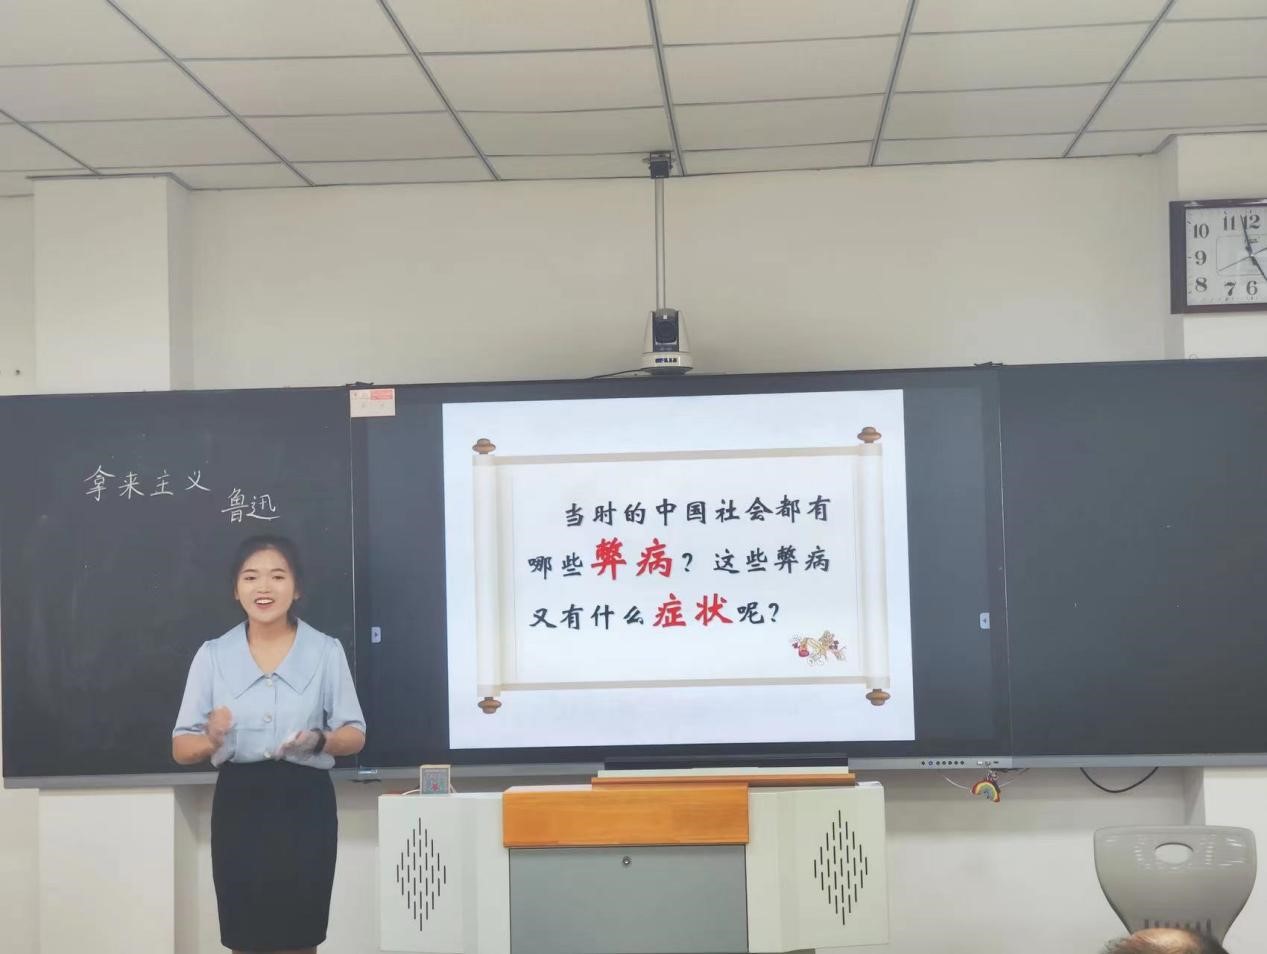 拿来主义
鲁迅
当时的中国社会都有
哪些弊病？这些弊病
又有什么症状呢？
10 11 12
9
8 7 6